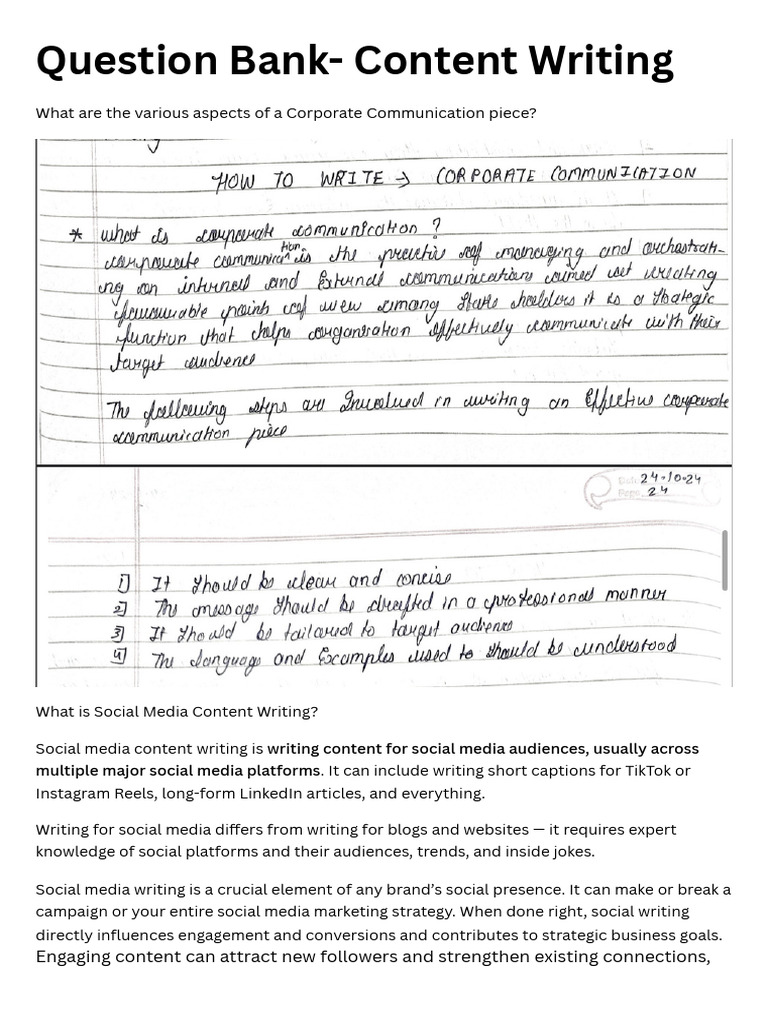 Question Bank- Content Writing
What are the various aspects of a Corporate Communication piece?
HOW TO WRITE → CORPORATE COMMUNICATION
* what is corporate communication ?
corporate communication is the practice of managing and orchestrati-
ng an internal and External communications aimed at creating
favourable points of view among stake holders it is a strategic
function that helps organisation effectively communicate with their
target audience
The following steps are Involved in writing an Effective corporate
communication piece
Date 24-10-24
Page 24
1] It should be clear and concise
2] The message should be drafted in a professional manner
3] It should be tailored to target audience
4] The language and Examples used to should be understood
What is Social Media Content Writing?
Social media content writing is writing content for social media audiences, usually across
multiple major social media platforms. It can include writing short captions for TikTok or
Instagram Reels, long-form LinkedIn articles, and everything.
Writing for social media differs from writing for blogs and websites — it requires expert
knowledge of social platforms and their audiences, trends, and inside jokes.
Social media writing is a crucial element of any brand's social presence. It can make or break a
campaign or your entire social media marketing strategy. When done right, social writing
directly influences engagement and conversions and contributes to strategic business goals.
Engaging content can attract new followers and strengthen existing connections,